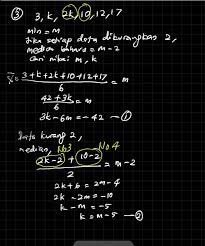 ③ 3, k, 2k, 10, 12, 17
min = m
Jika setiap data dikurangkan 2,
median baharu = m-2
cari nilai m, k
x̄ = (3+k+2k+10+12+17)/6 = m
(42+3k)/6 = m
3k-6m = -42 — ①
Data kurang 2,
median, No3 No4
((2k-2)+(10-2))/2 = m-2
2k+6 = 2m-4
2k-2m = -10
k-m = -5
k = m-5 — ②